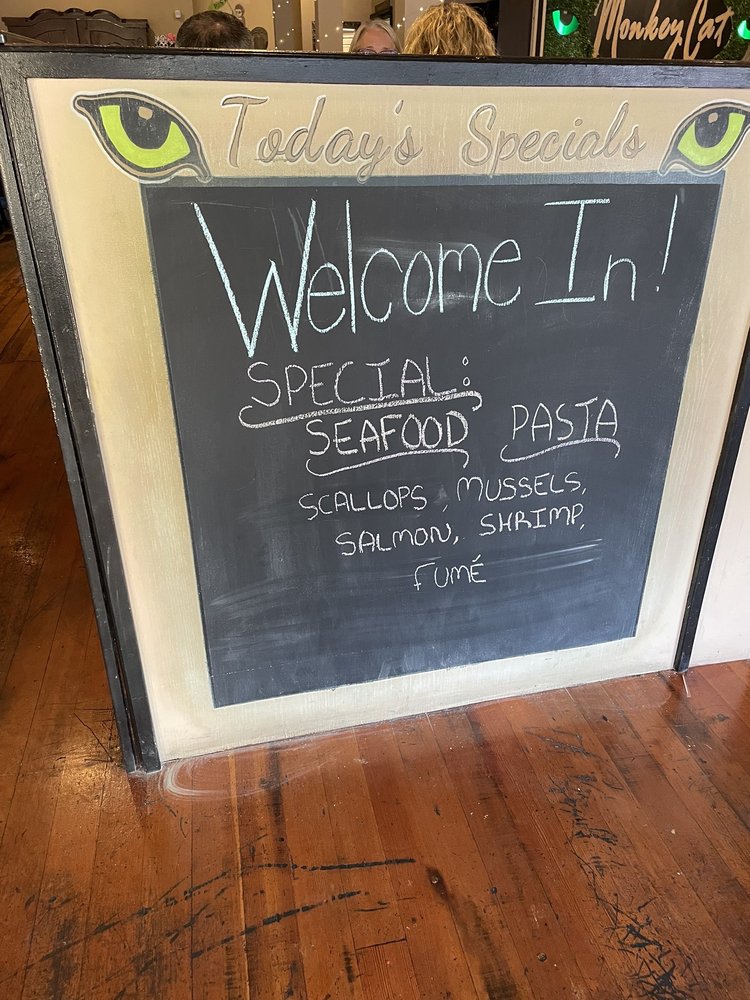 Monkey Cat
Today's Specials
Welcome In!
SPECIAL:
SEAFOOD PASTA
SCALLOPS, MUSSELS,
SALMON, SHRIMP,
FUMÉ